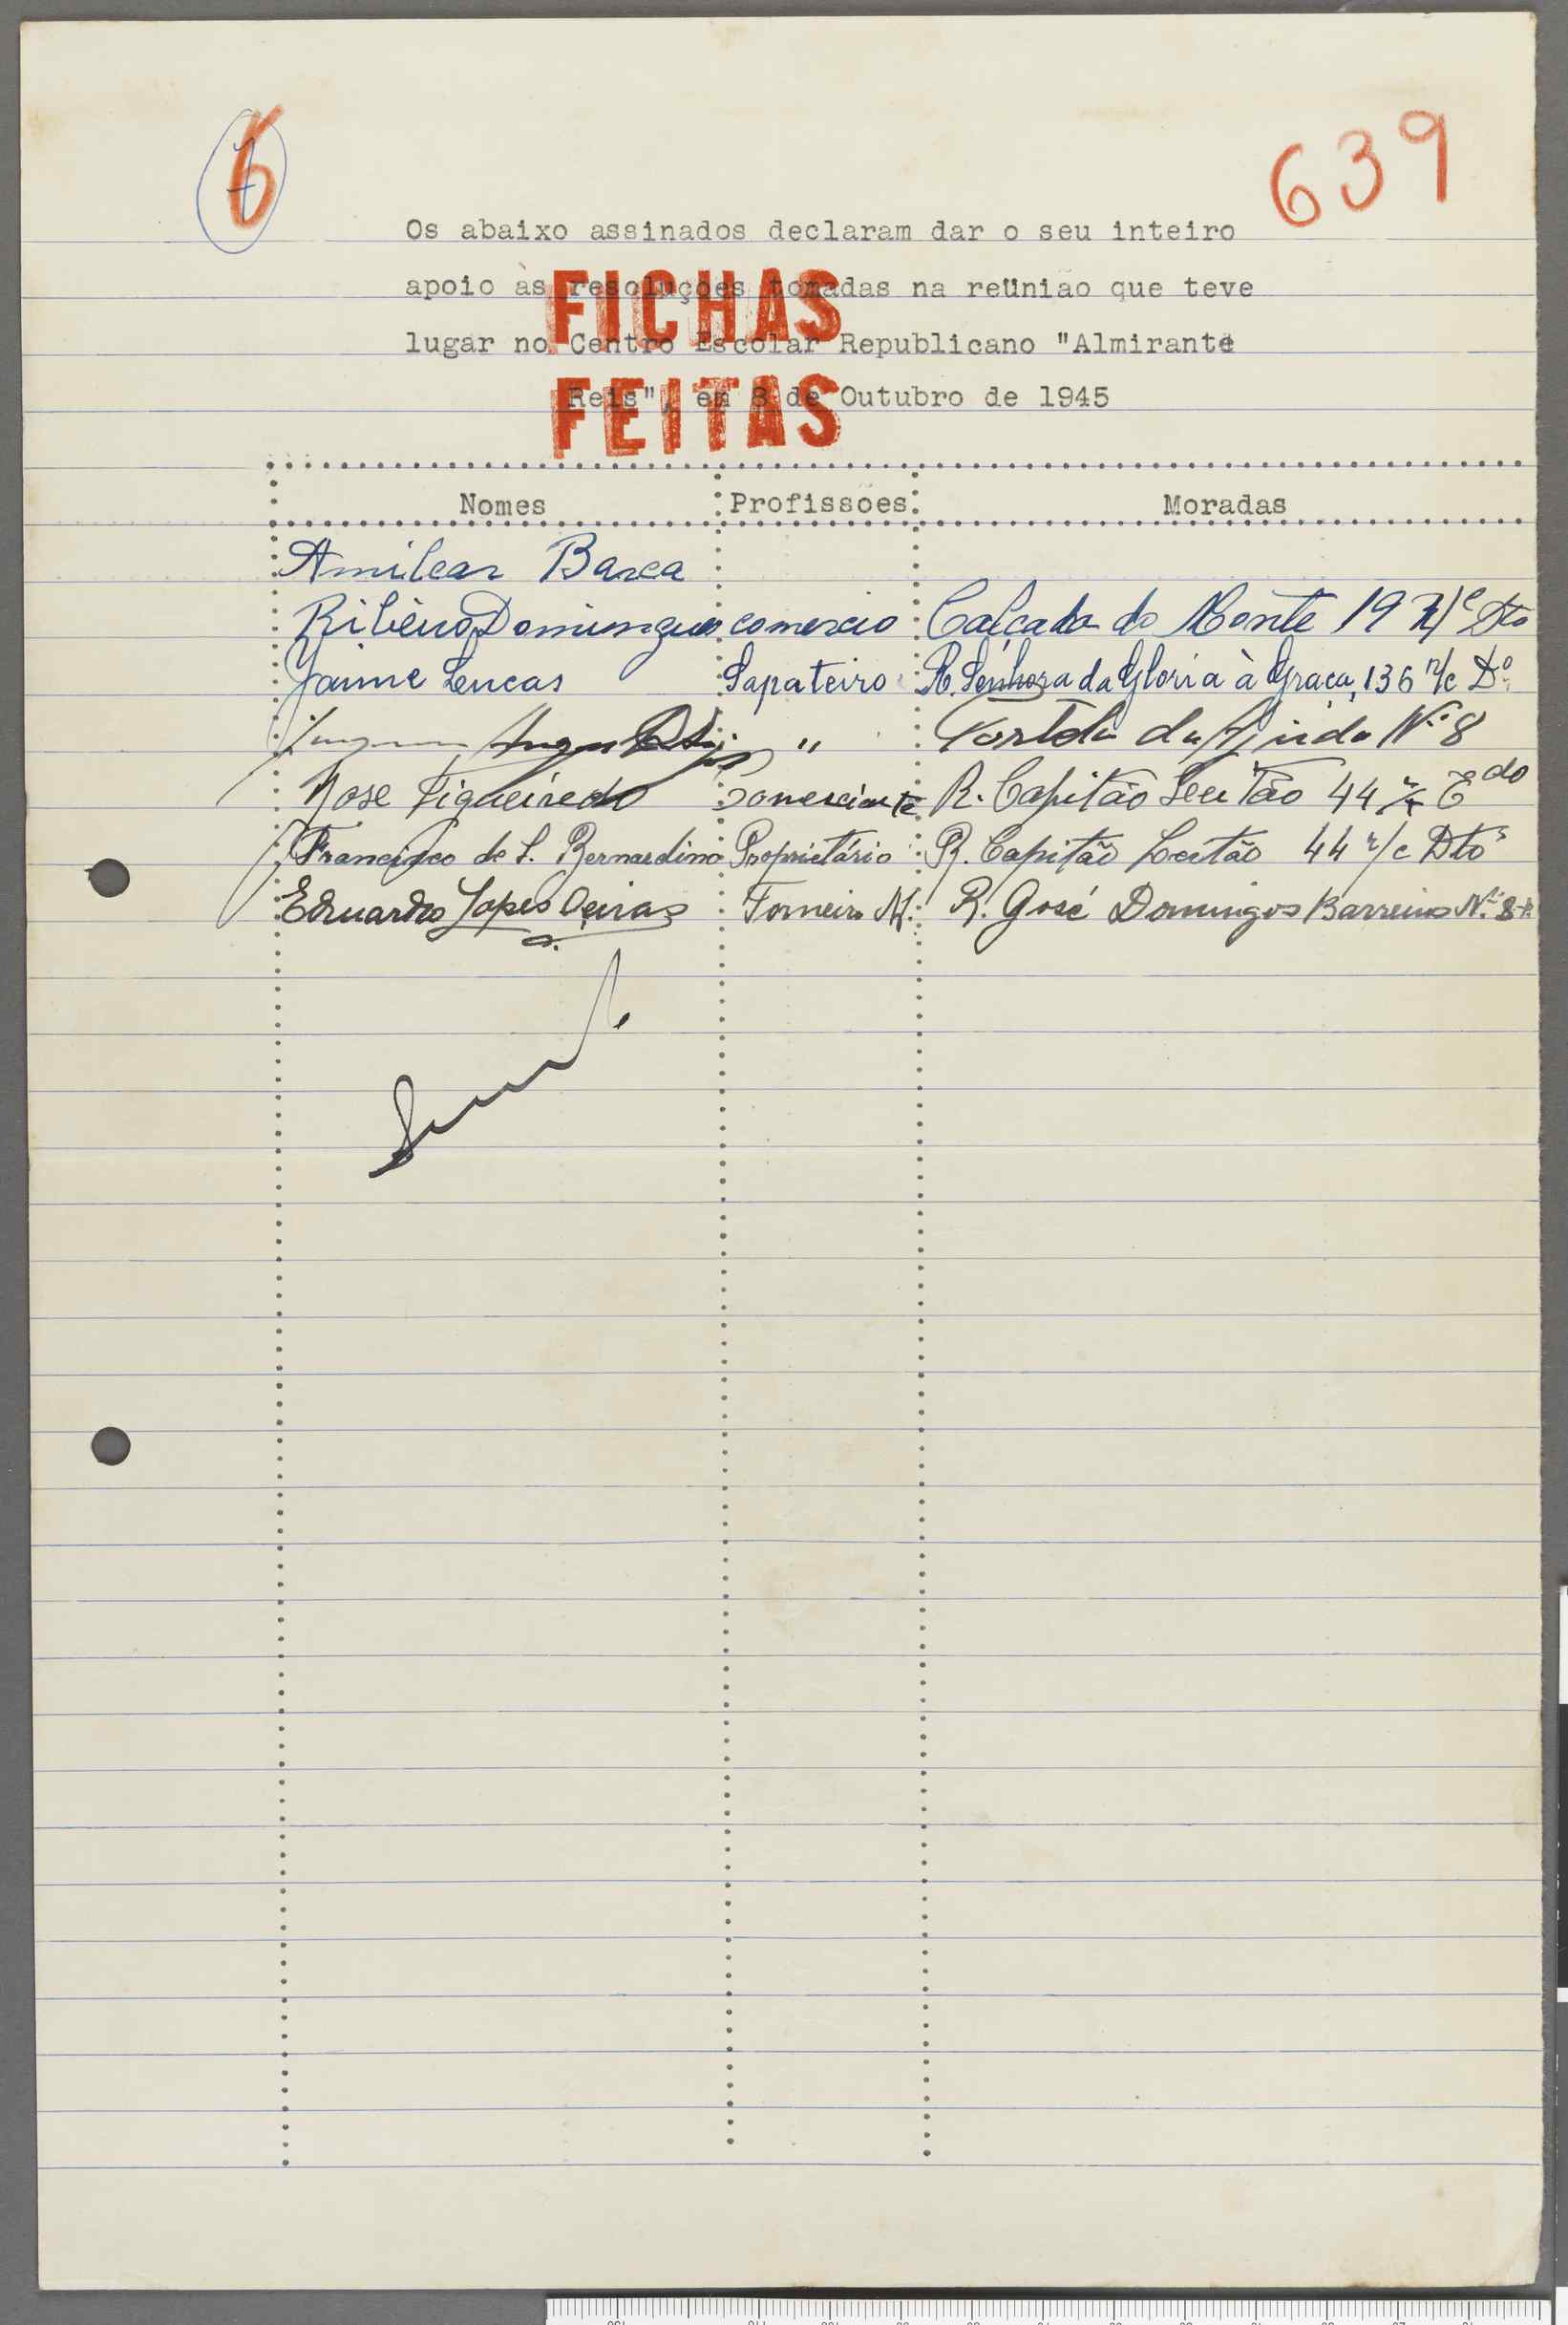 6
639
Os abaixo assinados declaram dar o seu inteiro
apoio às resoluções tomadas na reünião que teve
lugar no Centro Escolar Republicano "Almirante
Reis", em 8 de Outubro de 1945
FICHAS
FEITAS
Nomes Profissoes Moradas
Amilcar Barca
Ribeiro Domingues comercio Calçada do Monte 19 r/c Dto
Jaime Lucas Sapateiro R. Senhora da Gloria à Graça, 136 r/c Dº
" Nº 8
Jose Figueiredo Comerciante R. Capitão Leitão 44 r/c Edo
Francisco de S. Bernardino Proprietário R. Capitão Leitão 44 r/c Dto
Eduardo Lopes Oeiras Torneiro M. R. José Domingos Barreiros Nº 8